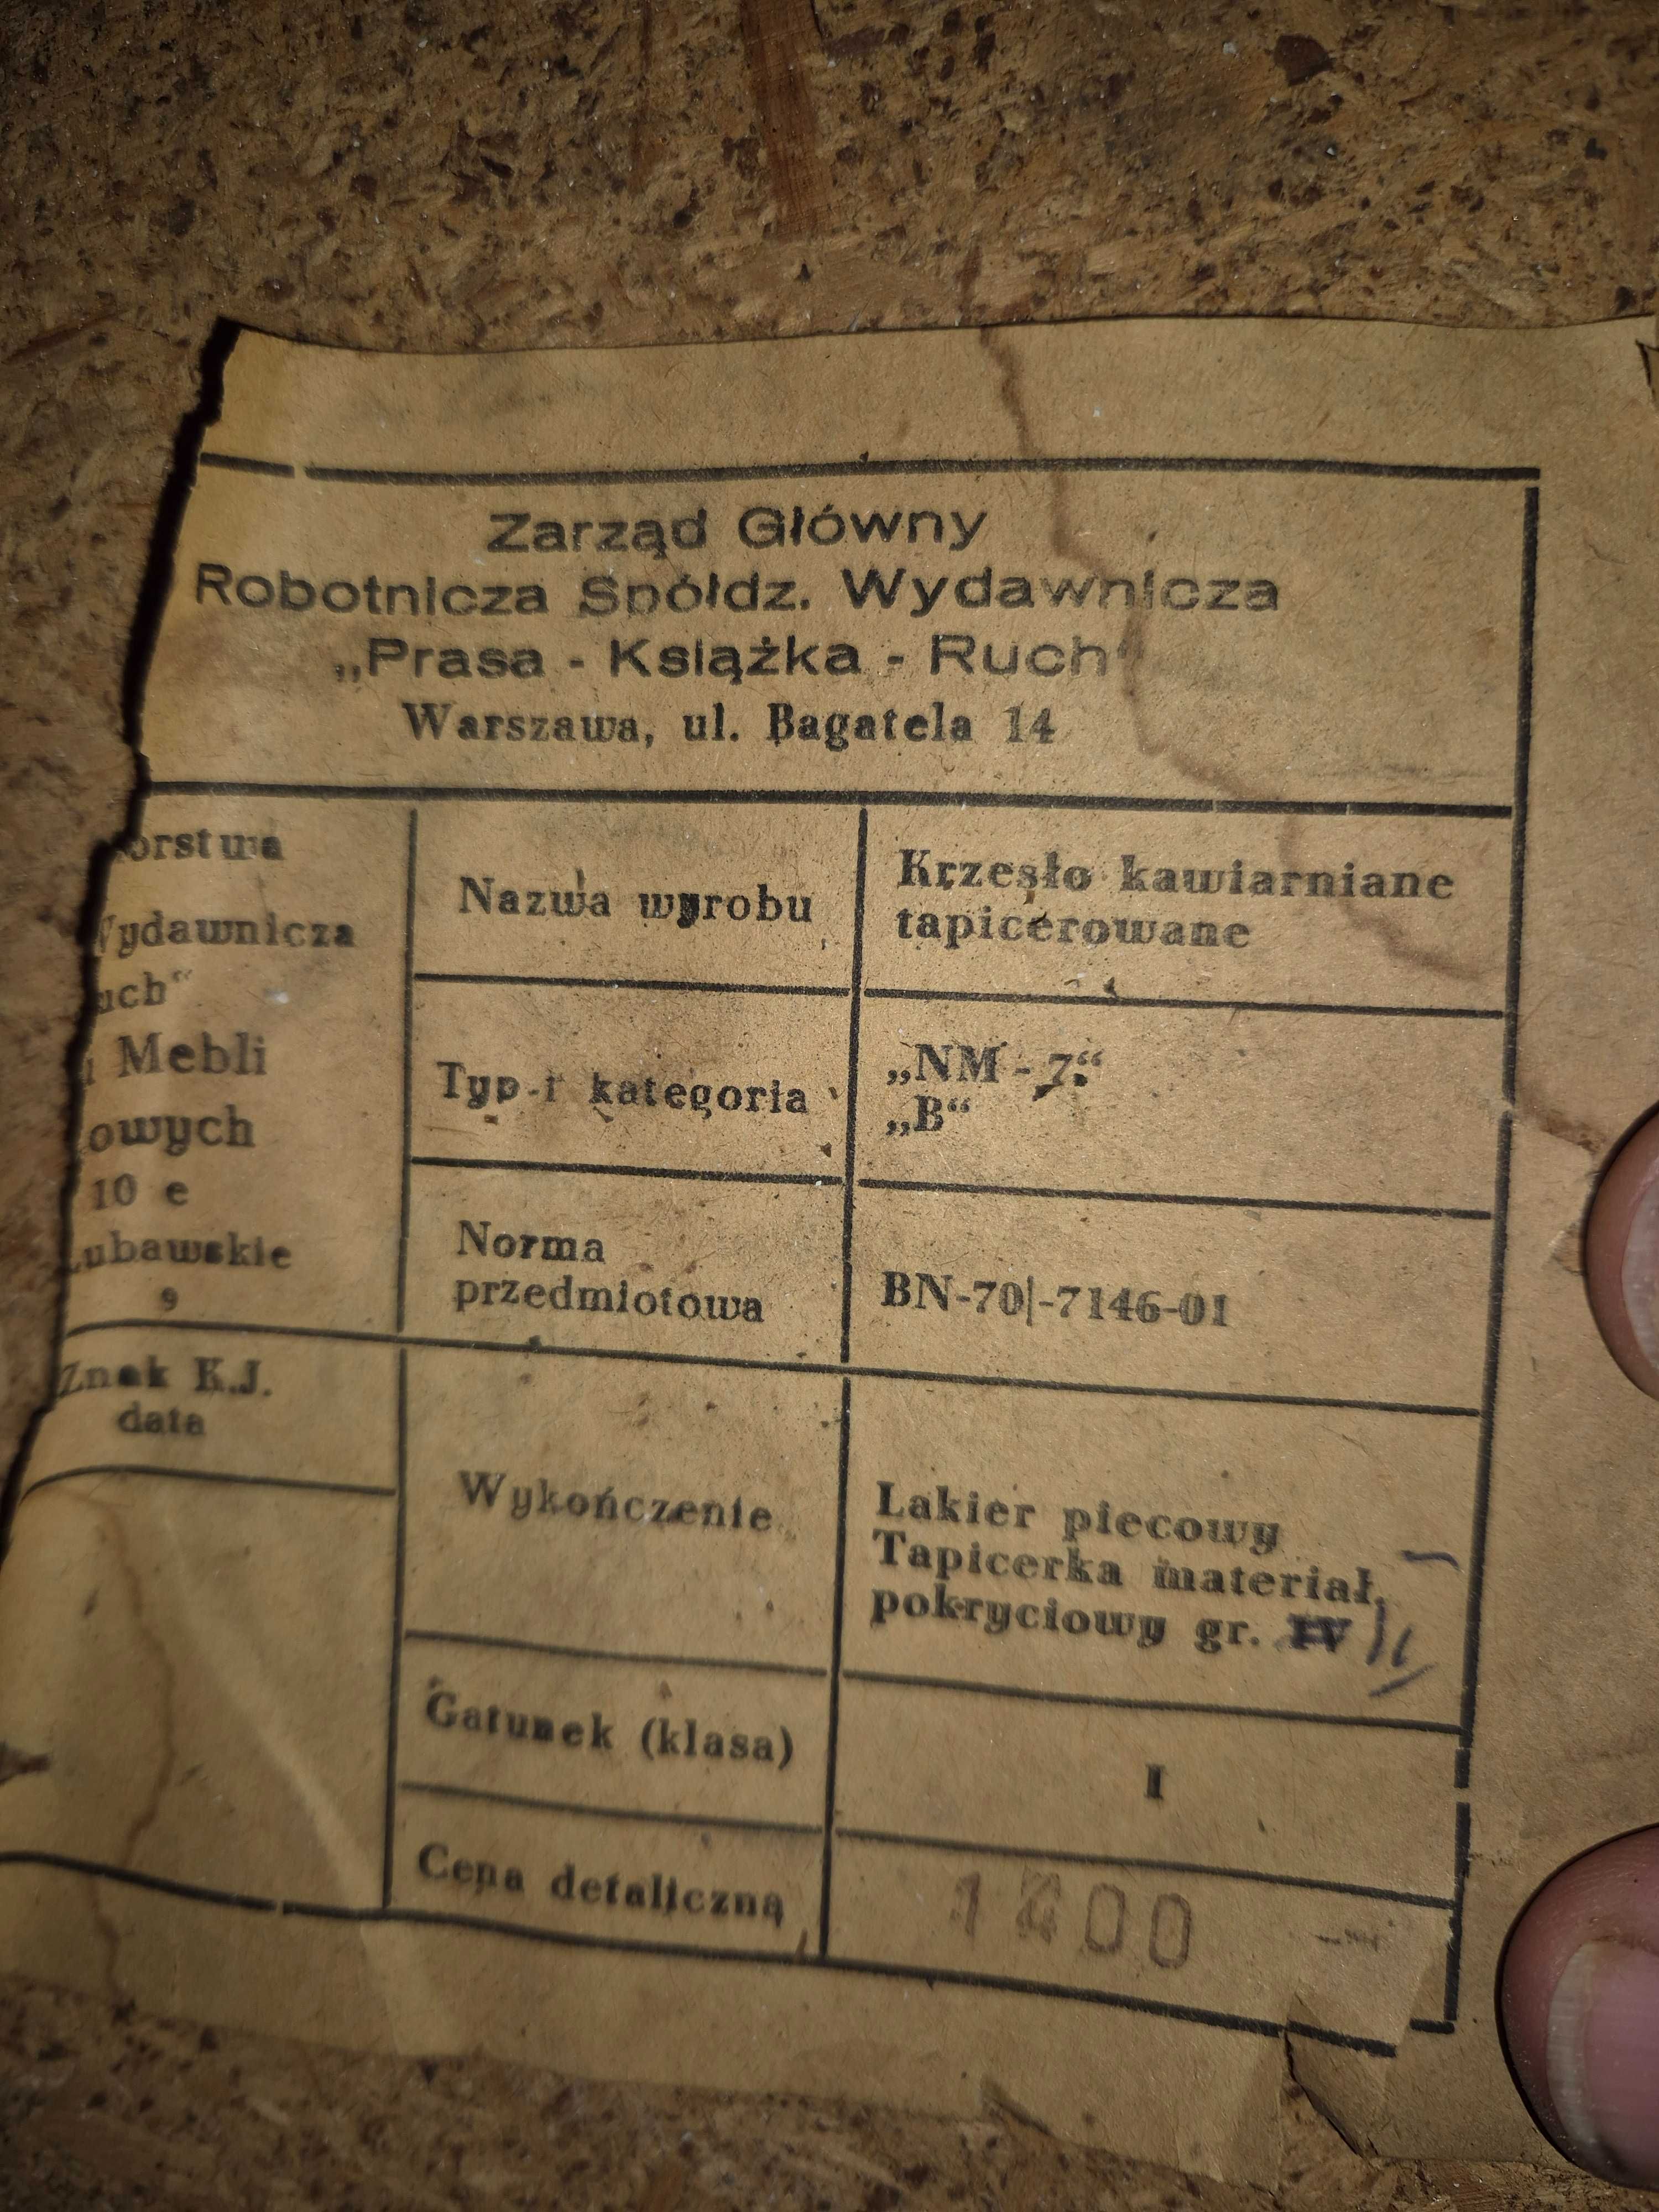 Zarząd Główny
Robotnicza Spółdz. Wydawnicza
„Prasa - Książka - Ruch“
Warszawa, ul. Bagatela 14
orstwa
Wydawnicza
uch“
Mebli
owych
10 e
Lubawskie
9
Znak K.J.
data
Nazwa wyrobu
Krzesło kawiarniane
tapicerowane
Typ i kategoria
„NM - 7“
„B“
Norma
przedmiotowa
BN-70|-7146-01
Wykończenie
Lakier piecowy
Tapicerka materiał.
pokryciowy gr. IV II
Gatunek (klasa)
I
Cena detaliczną